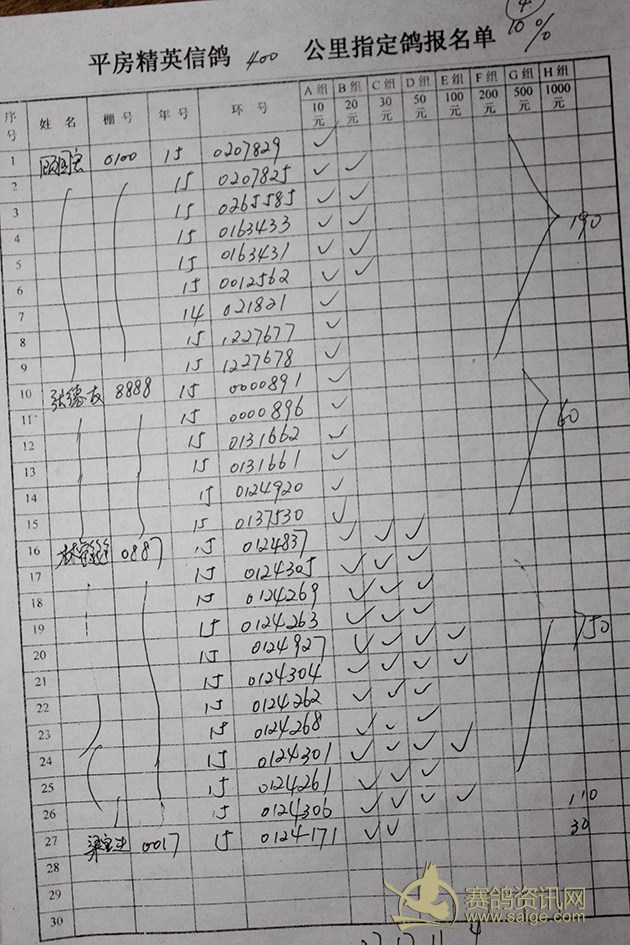 ④
平房精英信鸽 400 公里指定鸽报名单 10%
序号 姓名 棚号 年号 环号 A组10元 B组20元 C组30元 D组50元 E组100元 F组200元 G组500元 H组1000元
1 0100 15 0207829 ✓
2 15 0207825 ✓ ✓
3 15 0265585 ✓ ✓
4 15 0163433 ✓ ✓ 190
5 15 0163431 ✓ ✓
6 15 0012562 ✓ ✓
7 14 021821 ✓
8 15 1227677 ✓
9 15 1227678 ✓
10 张德友 8888 15 0000891 ✓
11 15 0000896 ✓
12 15 0131662 ✓ 60
13 15 0131661 ✓
14 15 0124920 ✓
15 15 0137530 ✓
16 0887 15 0124837 ✓ ✓ ✓
17 15 0124305 ✓ ✓ ✓
18 15 0124269 ✓ ✓ ✓
19 15 0124263 ✓ ✓ ✓
20 15 0124927 ✓ ✓ ✓ ✓
21 15 0124304 ✓ ✓ ✓ ✓
22 15 0124262 ✓ ✓ ✓
23 15 0124268 ✓ ✓ ✓
24 15 0124301 ✓ ✓ ✓ ✓
25 15 0124261 ✓ ✓ ✓
26 15 0124306 ✓ ✓ ✓ ✓ 110
27 0017 15 0124171 ✓ ✓ 30
28
29
30
赛鸽资讯网
www.saige.com